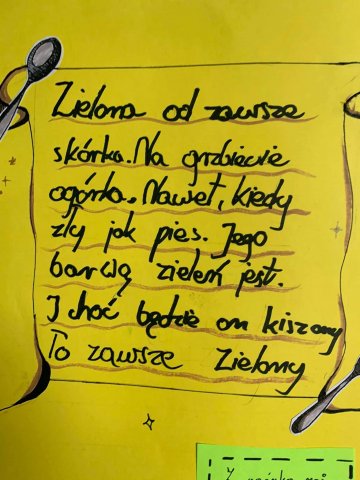 Zielona od zawsze
skórka. Na grzbiecie
ogórka. Nawet, kiedy
zły jak pies. Jego
barwą zieleń jest.
I choć będzie on kiszony
To zawsze Zielony